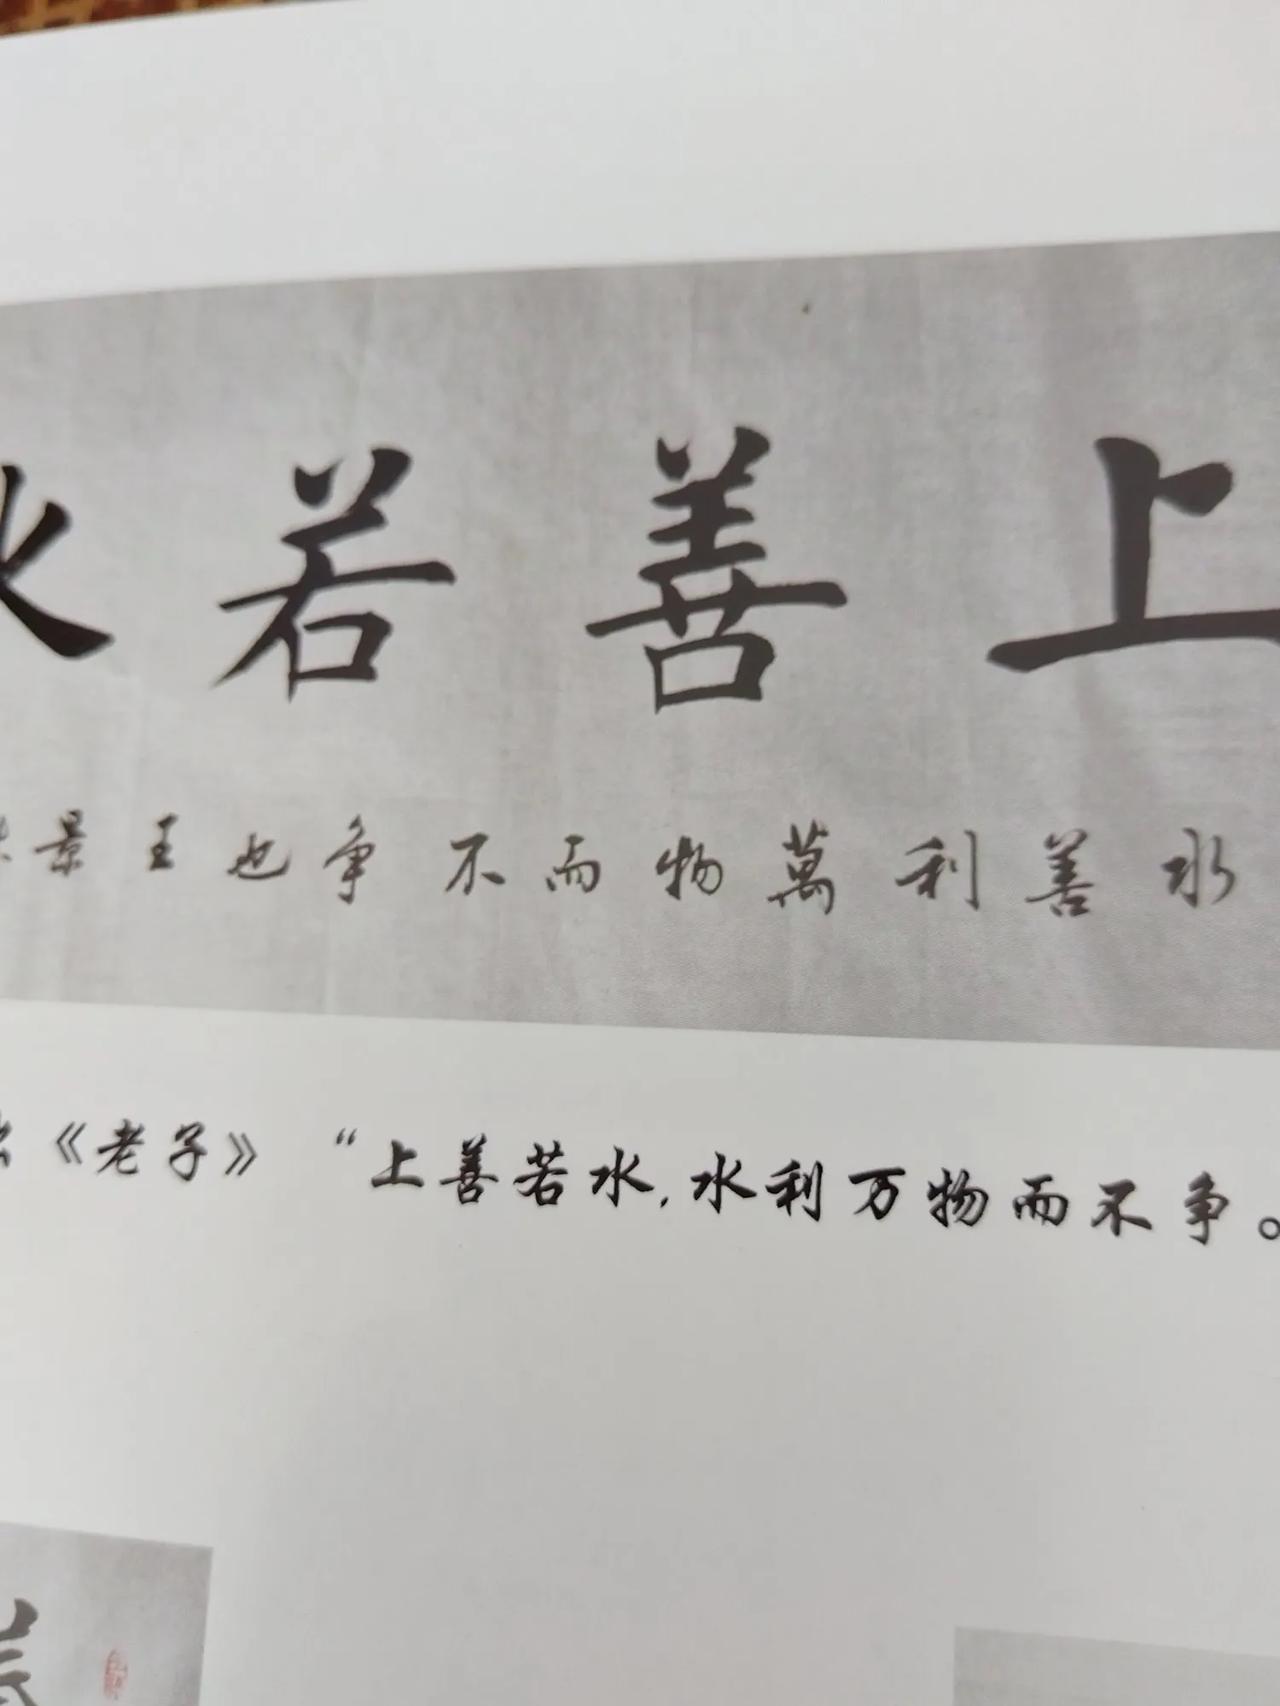 上善若水
水善利萬物而不争也王景
《老子》“上善若水,水利万物而不争。